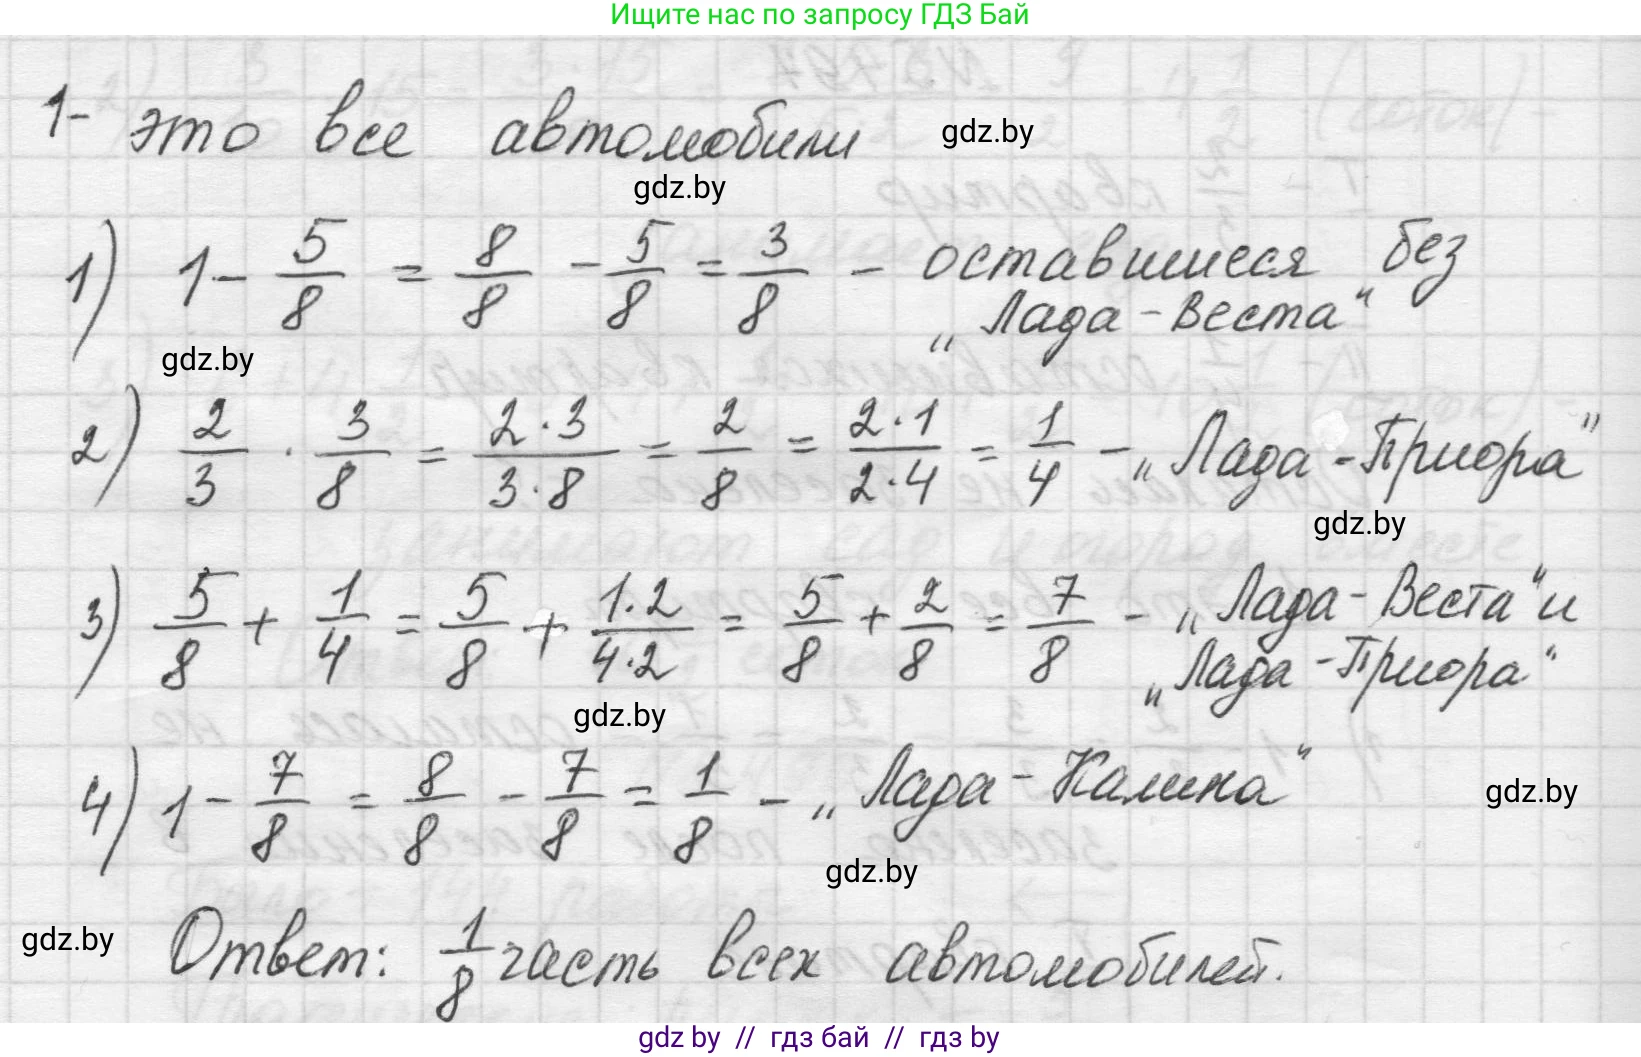 Ищите нас по запросу ГДЗ Бай
1- это все автомобили gdz.by
gdz.by
1) 1 - 5/8 = 8/8 - 5/8 = 3/8 - оставшиеся без
„Лада-Веста“
gdz.by
2) 2/3 · 3/8 = 2·3/3·8 = 2/8 = 2·1/2·4 = 1/4 - „Лада-Приора“
gdz.by
3) 5/8 + 1/4 = 5/8 + 1·2/4·2 = 5/8 + 2/8 = 7/8 - „Лада-Веста“ и
„Лада-Приора“
gdz.by
4) 1 - 7/8 = 8/8 - 7/8 = 1/8 - „Лада-Калина“ gdz.by
gdz.by
gdz.by Ответ: 1/8 часть всех автомобилей.
gdz by // гдз бай // гдз by